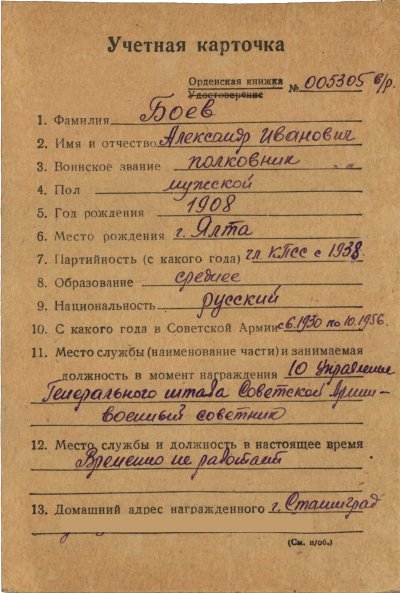 Учетная карточка
Орденская книжка
Удостоверение № 005305 б/р.
1. Фамилия Боев
2. Имя и отчество Александр Иванович
3. Воинское звание полковник
4. Пол мужской
5. Год рождения 1908
6. Место рождения г. Ялта
7. Партийность (с какого года) чл. КПСС с 1938
8. Образование среднее
9. Национальность русский
10. С какого года в Советской Армии с 6.1930 по 10.1956.
11. Место службы (наименование части) и занимаемая
должность в момент награждения 10 Управление
Генерального штаба Советской Армии -
военный советник
12. Место службы и должность в настоящее время
Временно не работает
13. Домашний адрес награжденного г. Сталинград
(См. н/об.)